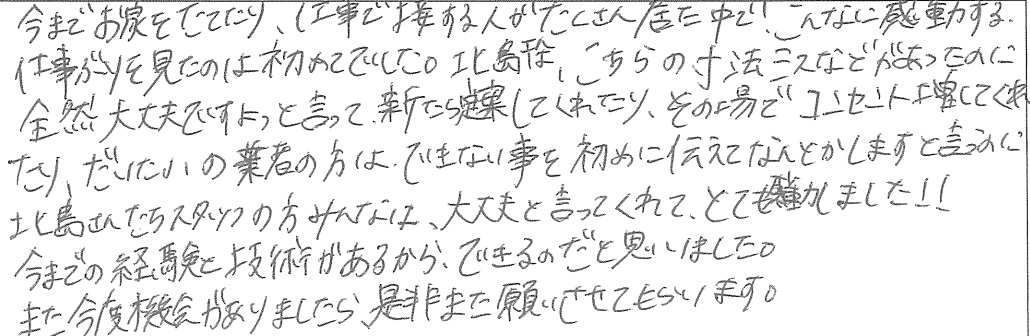 今までお家をたてたり、仕事で接する人がたくさん居た中で、こんなに感動する
仕事がりを見たのは初めてでした。北島様、こちらの寸法ミスなどがあったのに
全然大丈夫ですよっと言って、新たら提案してくれたり、その場でコンセント増してくれ
たり、だいたいの業者の方は、できない事を初めに伝えてなんとかしますと言うのに
北島さんたちスタッフの方みんなは、大丈夫と言ってくれて、とても感動しました!!
今までの経験と技術があるから、できるのだと思いました。
また今度機会がありましたら、是非また願いさせてもらいます。